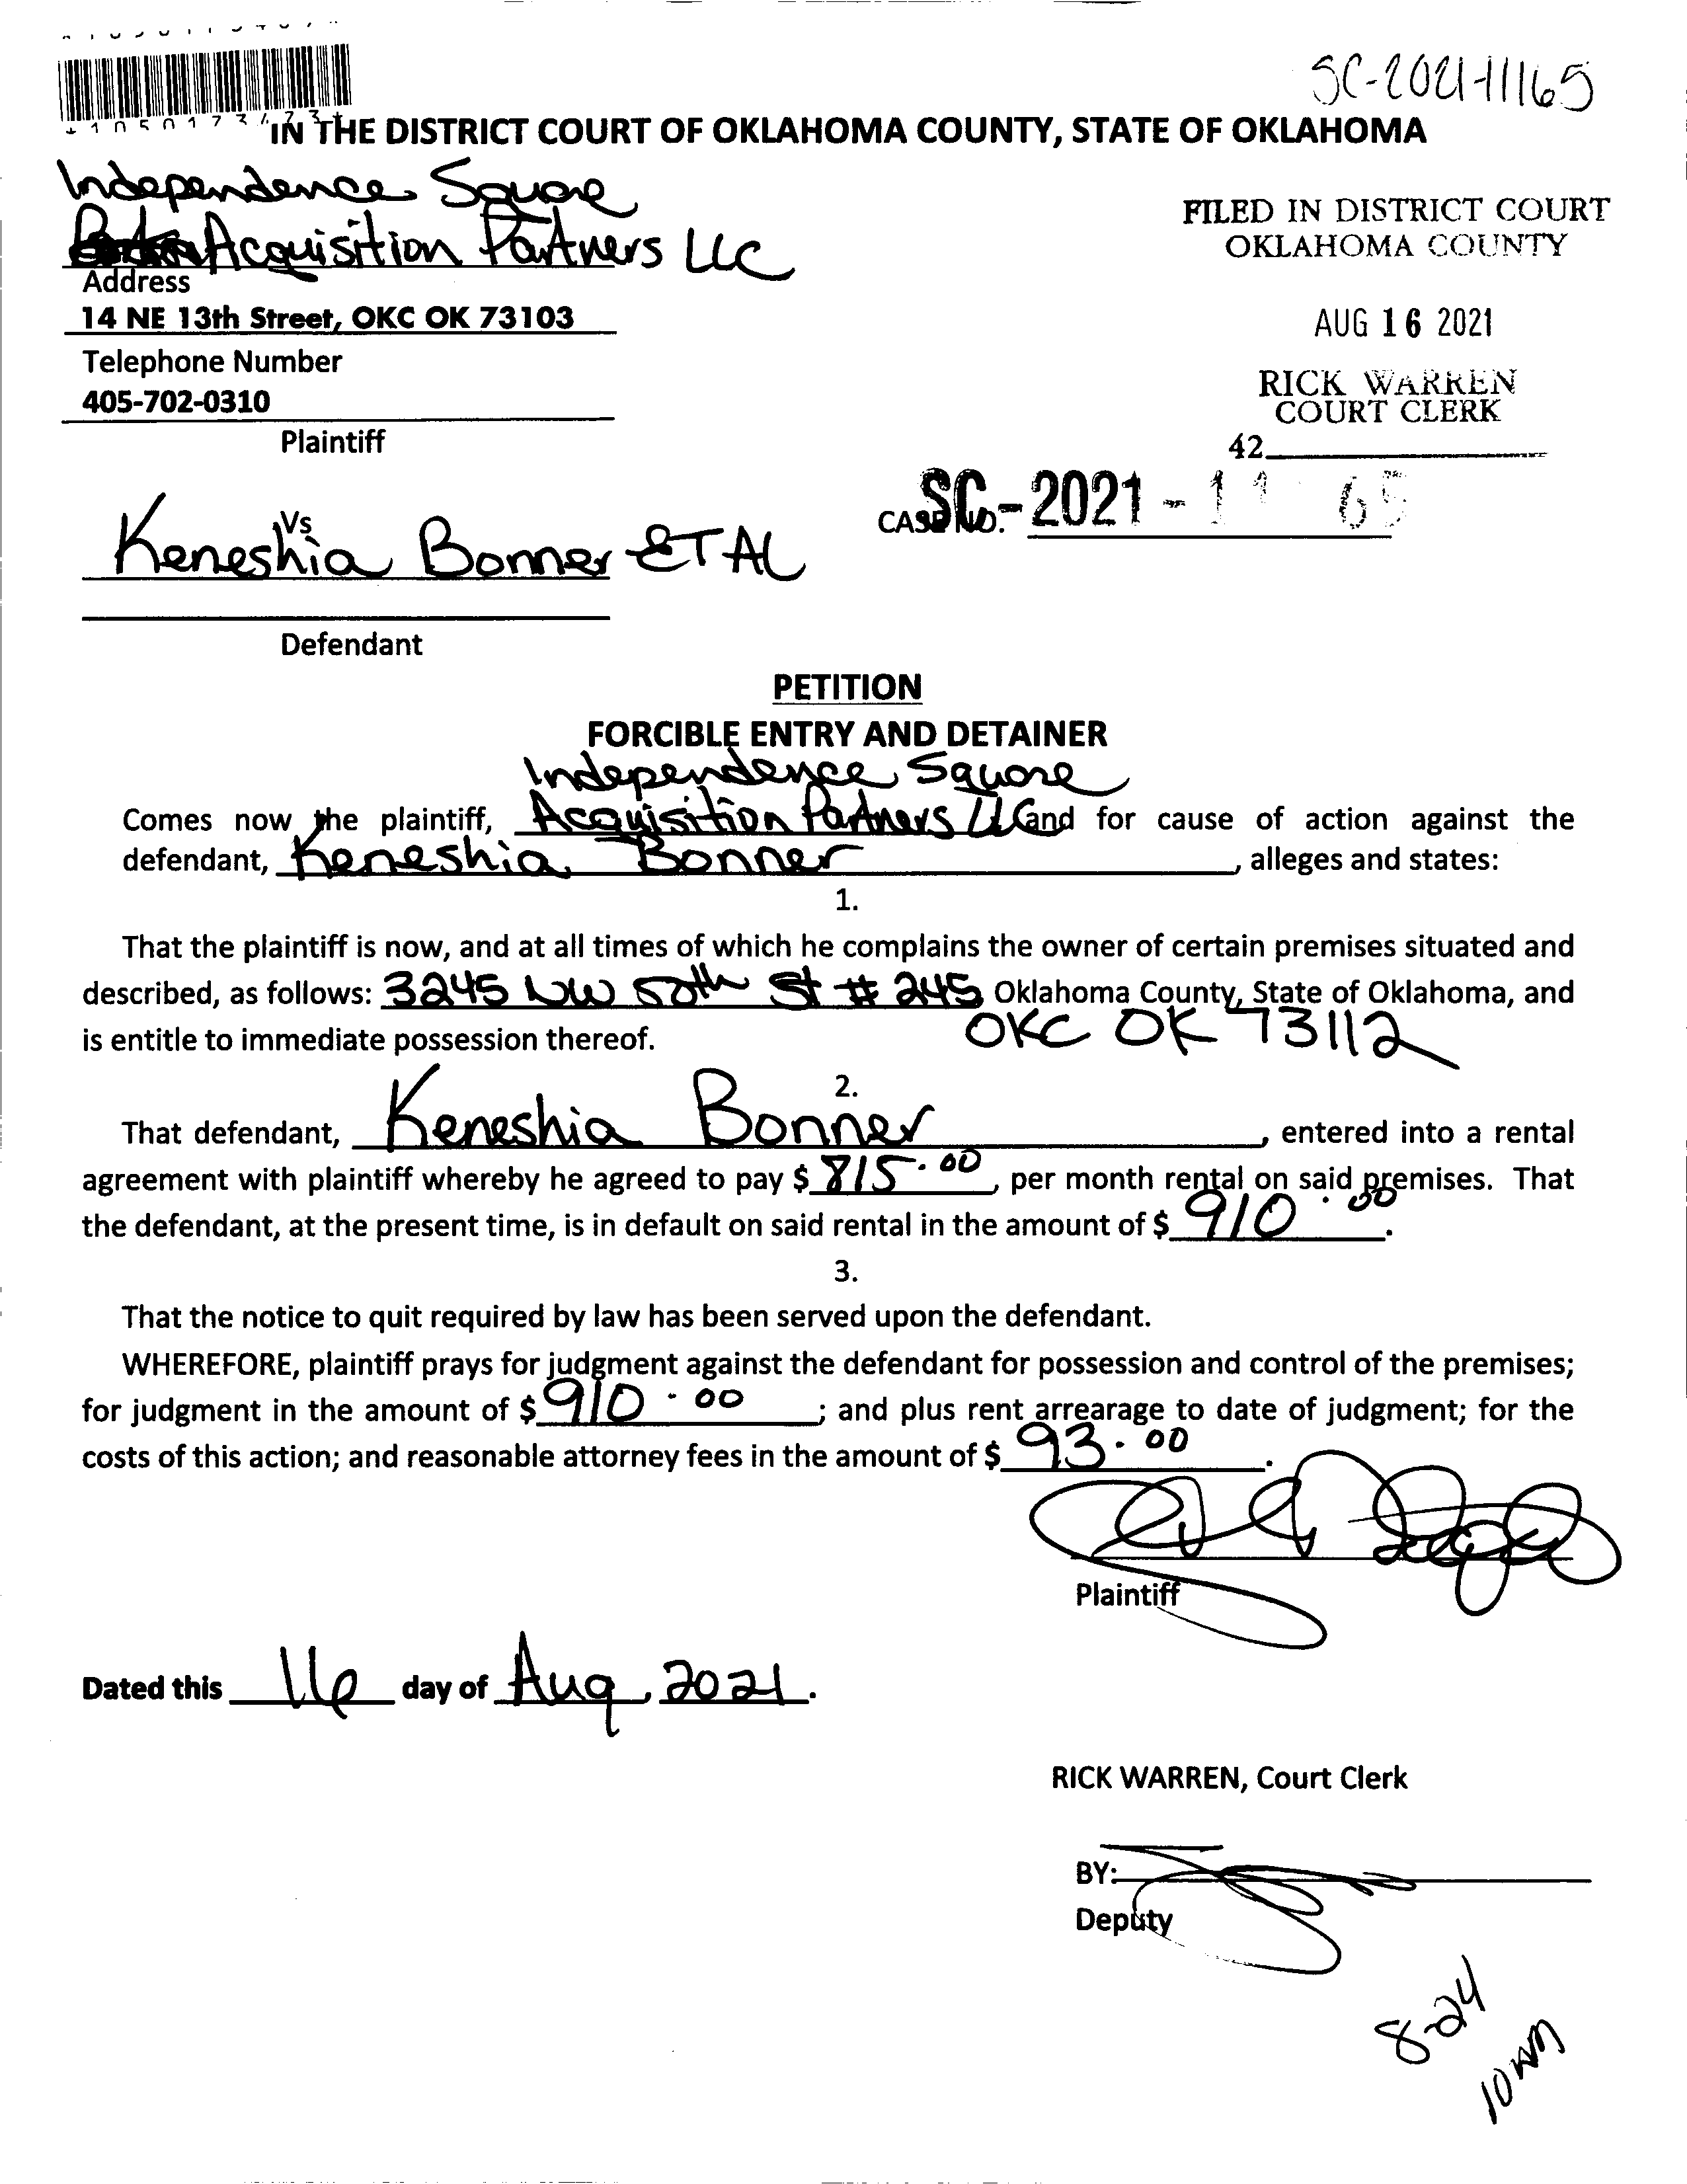 SC-2021-11165
IN THE DISTRICT COURT OF OKLAHOMA COUNTY, STATE OF OKLAHOMA
Independence Square
Acquisition Partners LLC
Address
14 NE 13th Street, OKC OK 73103
Telephone Number
405-702-0310
Plaintiff
FILED IN DISTRICT COURT
OKLAHOMA COUNTY
AUG 16 2021
RICK WARREN
COURT CLERK
42
CASE NO. SC-2021-11 65
Vs
Keneshia Bonner ET AL
Defendant
PETITION
FORCIBLE ENTRY AND DETAINER
Independence Square
Comes now the plaintiff, Acquisition Partners LLC and for cause of action against the
defendant, Keneshia Bonner, alleges and states:
1.
That the plaintiff is now, and at all times of which he complains the owner of certain premises situated and
described, as follows: 3245 NW 50th St # 245 Oklahoma County, State of Oklahoma, and
is entitle to immediate possession thereof. OKC OK 73112
2.
That defendant, Keneshia Bonner, entered into a rental
agreement with plaintiff whereby he agreed to pay $ 815.00, per month rental on said premises. That
the defendant, at the present time, is in default on said rental in the amount of $ 910.00.
3.
That the notice to quit required by law has been served upon the defendant.
WHEREFORE, plaintiff prays for judgment against the defendant for possession and control of the premises;
for judgment in the amount of $ 910.00; and plus rent arrearage to date of judgment; for the
costs of this action; and reasonable attorney fees in the amount of $ 93.00.
Plaintiff
Dated this 16 day of Aug, 2021.
RICK WARREN, Court Clerk
BY:
Deputy
8-24
10 AM